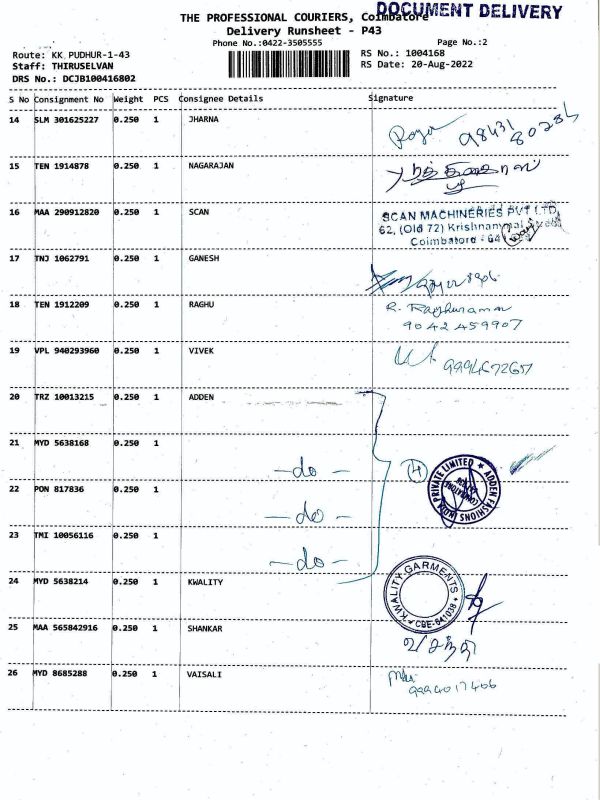 DOCUMENT DELIVERY
THE PROFESSIONAL COURIERS, Coimbatore
Delivery Runsheet - P43
Phone No.:0422-3505555
Page No.:2
Route: KK PUDHUR-1-43
RS No.: 1004168
Staff: THIRUSELVAN
RS Date: 20-Aug-2022
DRS No.: DCJB100416802
S No Consignment No Weight PCS Consignee Details Signature
14 SLM 301625227 0.250 1 JHARNA
15 TEN 1914878 0.250 1 NAGARAJAN
16 MAA 290912820 0.250 1 SCAN
SCAN MACHINERIES PVT LTD,
62, (Old 72) Krishnammal Street
Coimbatore - 641
17 TNJ 1062791 0.250 1 GANESH
18 TEN 1912209 0.250 1 RAGHU
R. Raghuraman
9042459907
19 VPL 940293960 0.250 1 VIVEK
9994672651
20 TRZ 10013215 0.250 1 ADDEN
21 MYD 5638168 0.250 1
- do -
4
ADDEN FASHIONS INDIA PRIVATE LIMITED
22 PON 817836 0.250 1
- do -
23 TMI 10056116 0.250 1
- do -
24 MYD 5638214 0.250 1 KWALITY
KWALITY GARMENTS
CBE-641038
25 MAA 565842916 0.250 1 SHANKAR
வசந்தி
26 MYD 8685288 0.250 1 VAISALI
9994017466